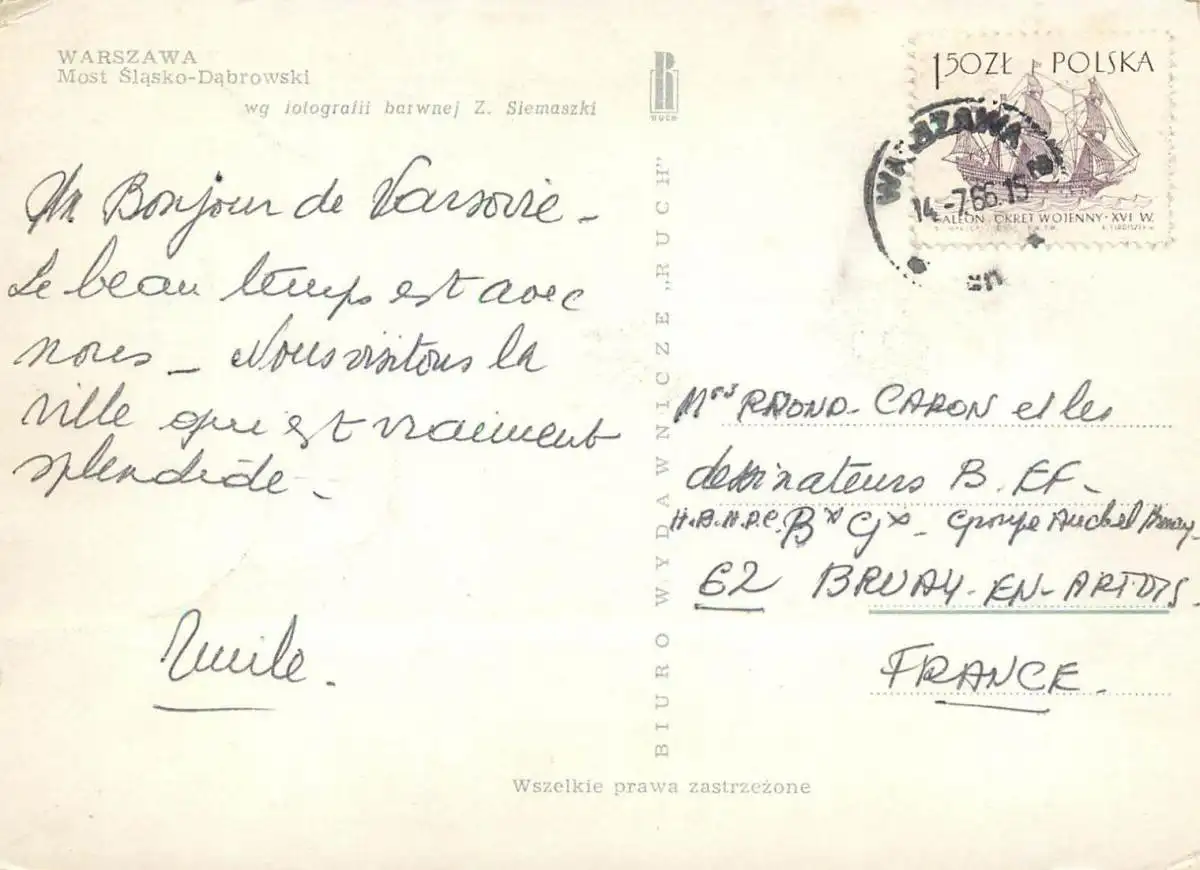 WARSZAWA
Most Śląsko-Dąbrowski
wg fotografii barwnej Z. Siemaszki
Un Bonjour de Varsovie -
Le beau temps est avec
nous - Nous visitons la
ville qui est vraiment
splendide -
Emile.
BIURO WYDAWNICZE „RUCH"
RUCH
1,50 ZŁ POLSKA
GALEON · OKRĘT WOJENNY · XVI W.
WARSZAWA
14.-7.66.15
Mrs CARON et les
dessinateurs B. EF -
H.B.N.P.C. Bx Gx - Groupe Auchel Bruay -
62 BRUAY-EN-ARTOIS -
FRANCE.
Wszelkie prawa zastrzeżone